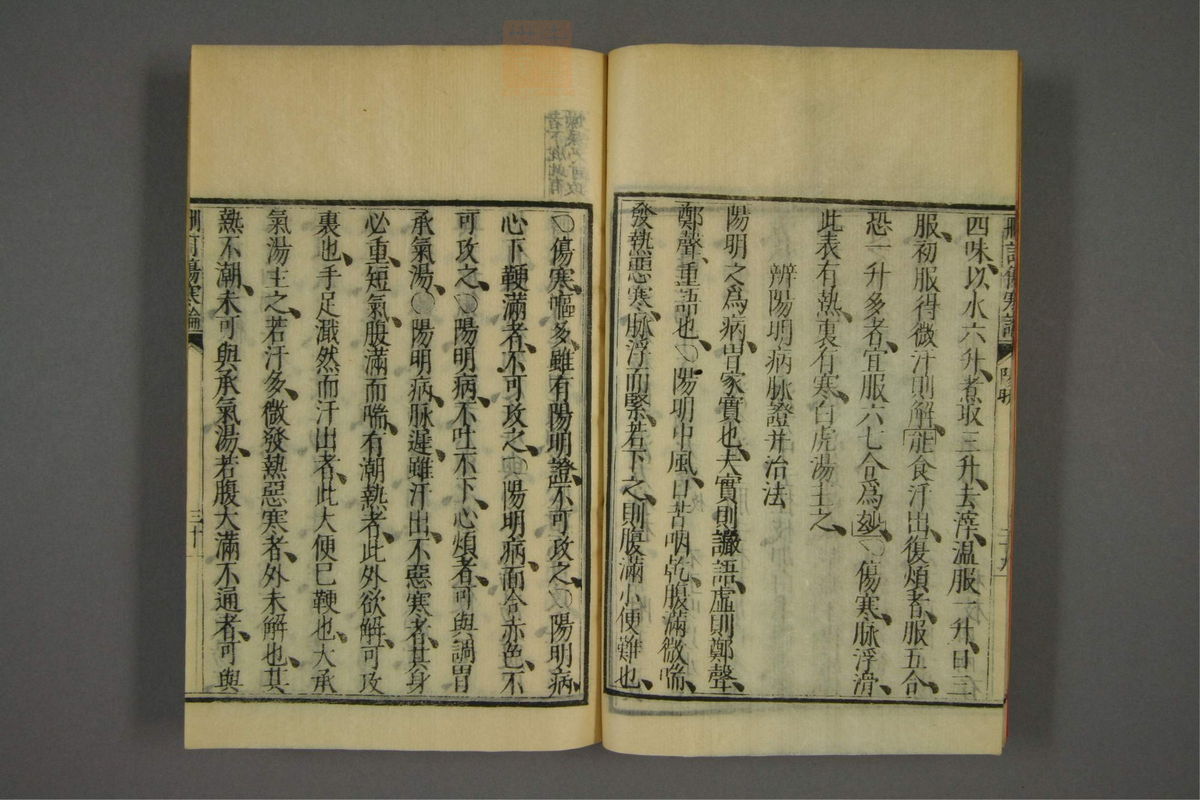 四味、以水六升、煮取三升、去滓、溫服一升、日三
服、初服得微汗則解、能食汗出、復煩者、服五合、
恐一升多者、宜服六七合爲妙、○傷寒、脉浮滑、
此表有熱、裏有寒、白虎湯主之、
辨陽明病脉證并治法
陽明之爲病、胃家實也、夫實則讝語、虛則鄭聲、
鄭聲、重語也、○陽明中風、口苦咽乾、腹滿微喘、
發熱惡寒、脉浮而緊、若下之、則腹滿小便難也、
刪訂傷寒論 陽明 二十九
○傷寒、嘔多、雖有陽明證、不可攻之、○陽明病、
心下鞕滿者、不可攻之、○陽明病、面合赤色、不
可攻之、○陽明病、不吐不下、心煩者、可與調胃
承氣湯、○陽明病、脉遲、雖汗出、不惡寒者、其身
必重、短氣腹滿而喘、有潮熱者、此外欲解、可攻
裏也、手足濈然而汗出者、此大便已鞕也、大承
氣湯主之、若汗多、微發熱惡寒者、外未解也、其
熱不潮、未可與承氣湯、若腹大滿不通者、可與
刪訂傷寒論 三十